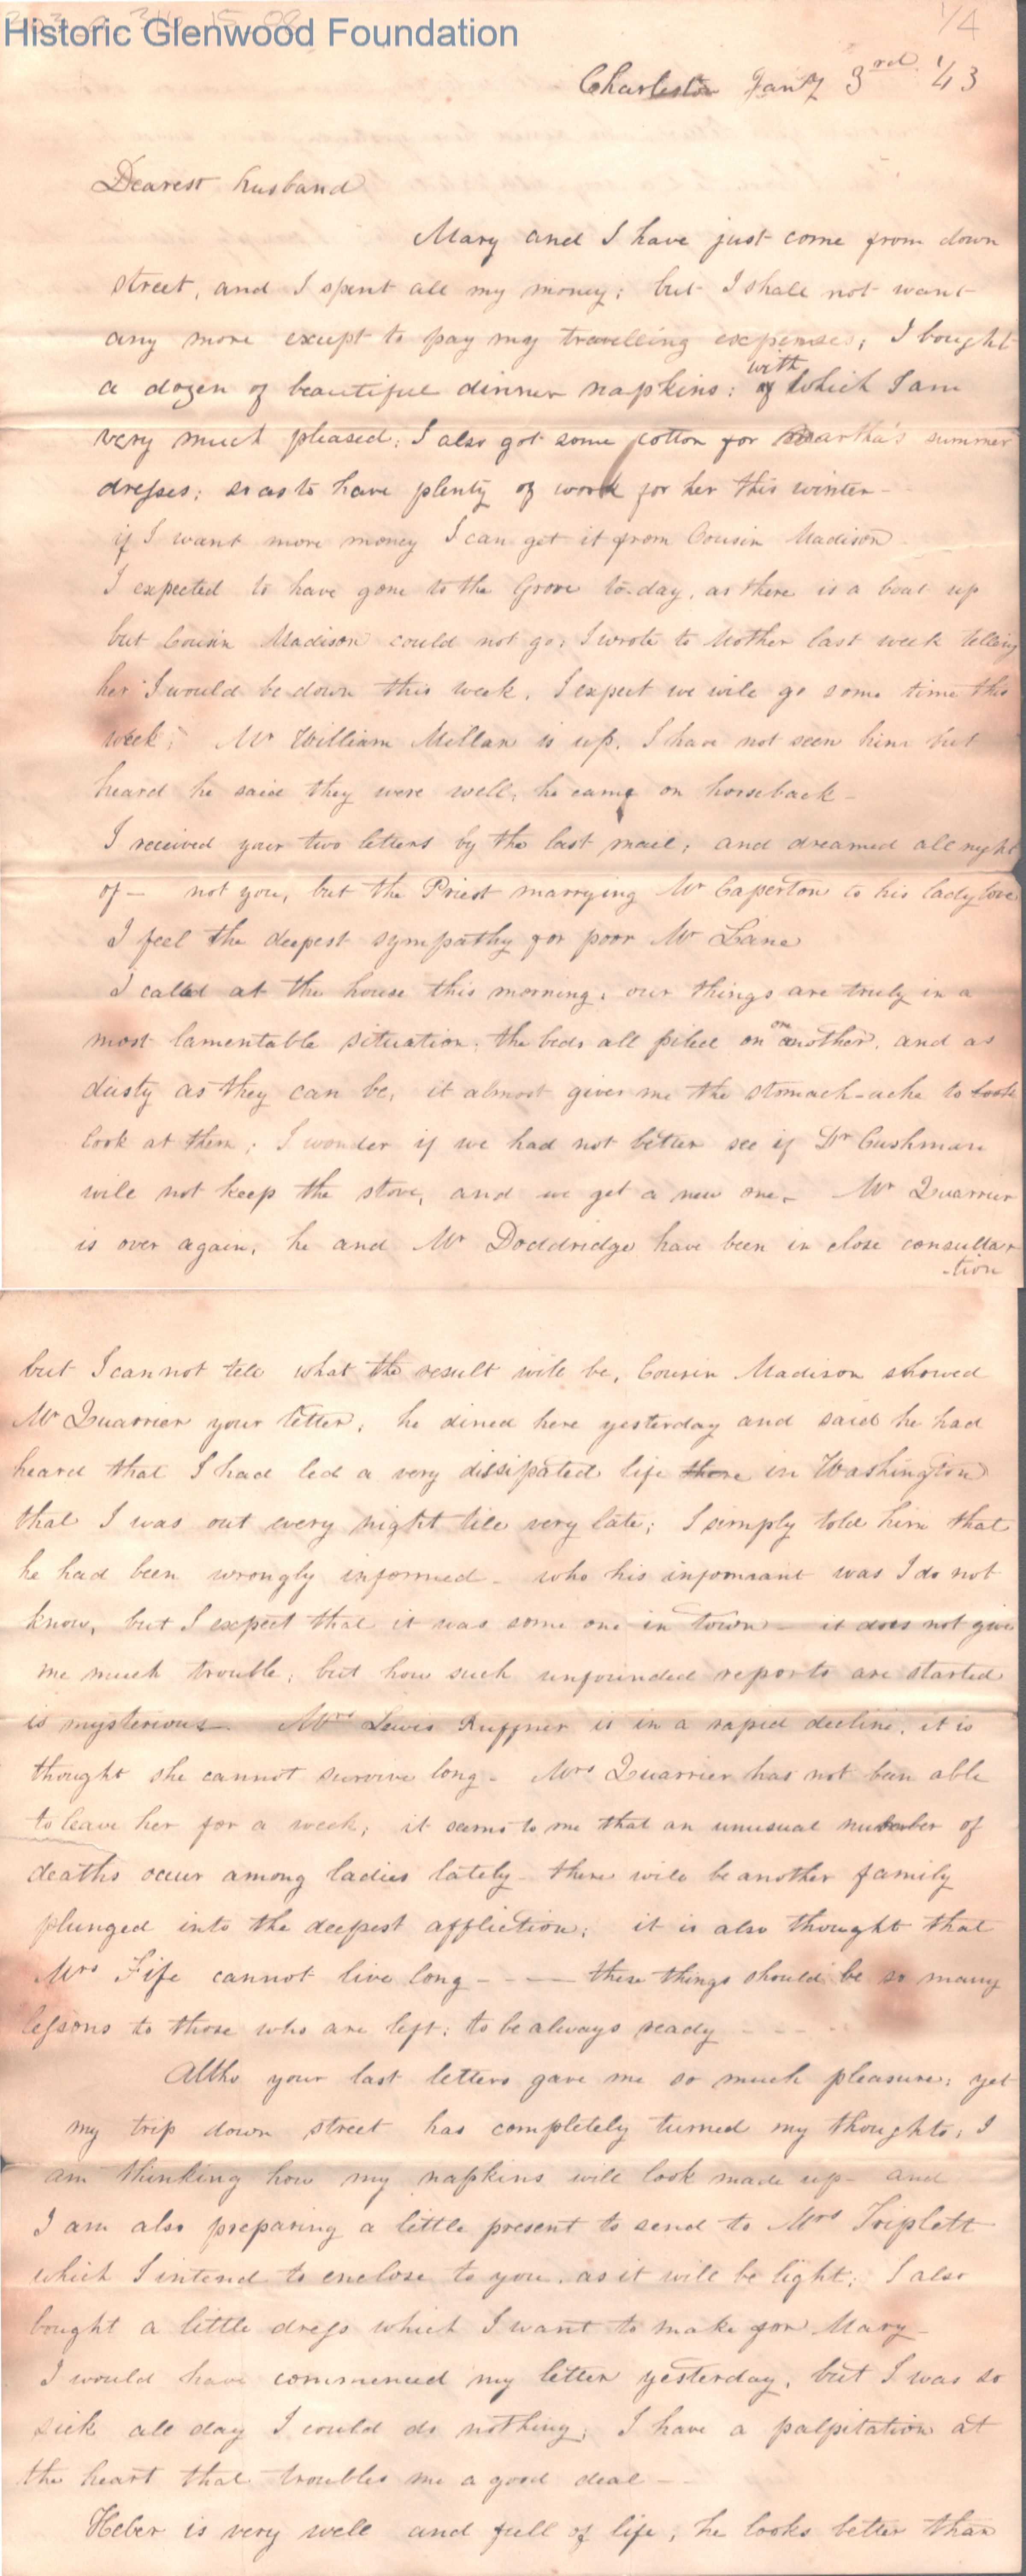 1/4
Historic Glenwood Foundation
Charleston Jany 3rd '43
Dearest husband
Mary and I have just come from down
street, and I spent all my money; but I shall not want
any more except to pay my travelling expenses; I bought
with
a dozen of beautiful dinner napkins: of which I am
very much pleased; I also got some cotton for Martha's summer
dresses; so as to have plenty of work for her this winter -
if I want more money I can get it from Cousin Madison -
I expected to have gone to the Grove to-day, as there is a boat up
but Cousin Madison could not go; I wrote to Mother last week telling
her I would be down this week, I expect we will go some time this
week; Mr William Millan is up, I have not seen him but
heard he said they were well; he came on horseback -
I received your two letters by the last mail; and dreamed all night
of - not you, but the Priest marrying Mr Caperton to his lady love
I feel the deepest sympathy for poor Mr Lane
I called at the house this morning; our things are truly in a
one
most lamentable situation; the beds all piled on another, and as
dusty as they can be, it almost gives me the stomach-ache to look
look at them; I wonder if we had not better see if Dr Cushman
will not keep the stove, and we get a new one - Mr Quarrier
is over again, he and Mr Doddridge have been in close consulta
-tion
but I cannot tell what the result will be, Cousin Madison showed
Mr Quarrier your letter; he dined here yesterday and said he had
heard that I had led a very dissipated life there in Washington
that I was out every night till very late; I simply told him that
he had been wrongly informed - who his informant was I do not
know, but I expect that it was some one in town - it does not give
me much trouble; but how such unfounded reports are started
is mysterious - Mrs Lewis Ruffner is in a rapid decline, it is
thought she cannot survive long - Mrs Quarrier has not been able
to leave her for a week; it seems to me that an unusual number of
deaths occur among ladies lately - there will be another family
plunged into the deepest affliction; it is also thought that
Mrs Fife cannot live long - - - these things should be so many
lessons to those who are left; to be always ready - - -
Altho your last letters gave me so much pleasure; yet
my trip down street has completely turned my thoughts; I
am thinking how my napkins will look made up - and
I am also preparing a little present to send to Mrs Triplett
which I intend to enclose to you, as it will be light; I also
bought a little dress which I want to make for Mary -
I would have commenced my letter yesterday, but I was so
sick all day I could do nothing; I have a palpitation at
the heart that troubles me a good deal - -
Heber is very well and full of life; he looks better than